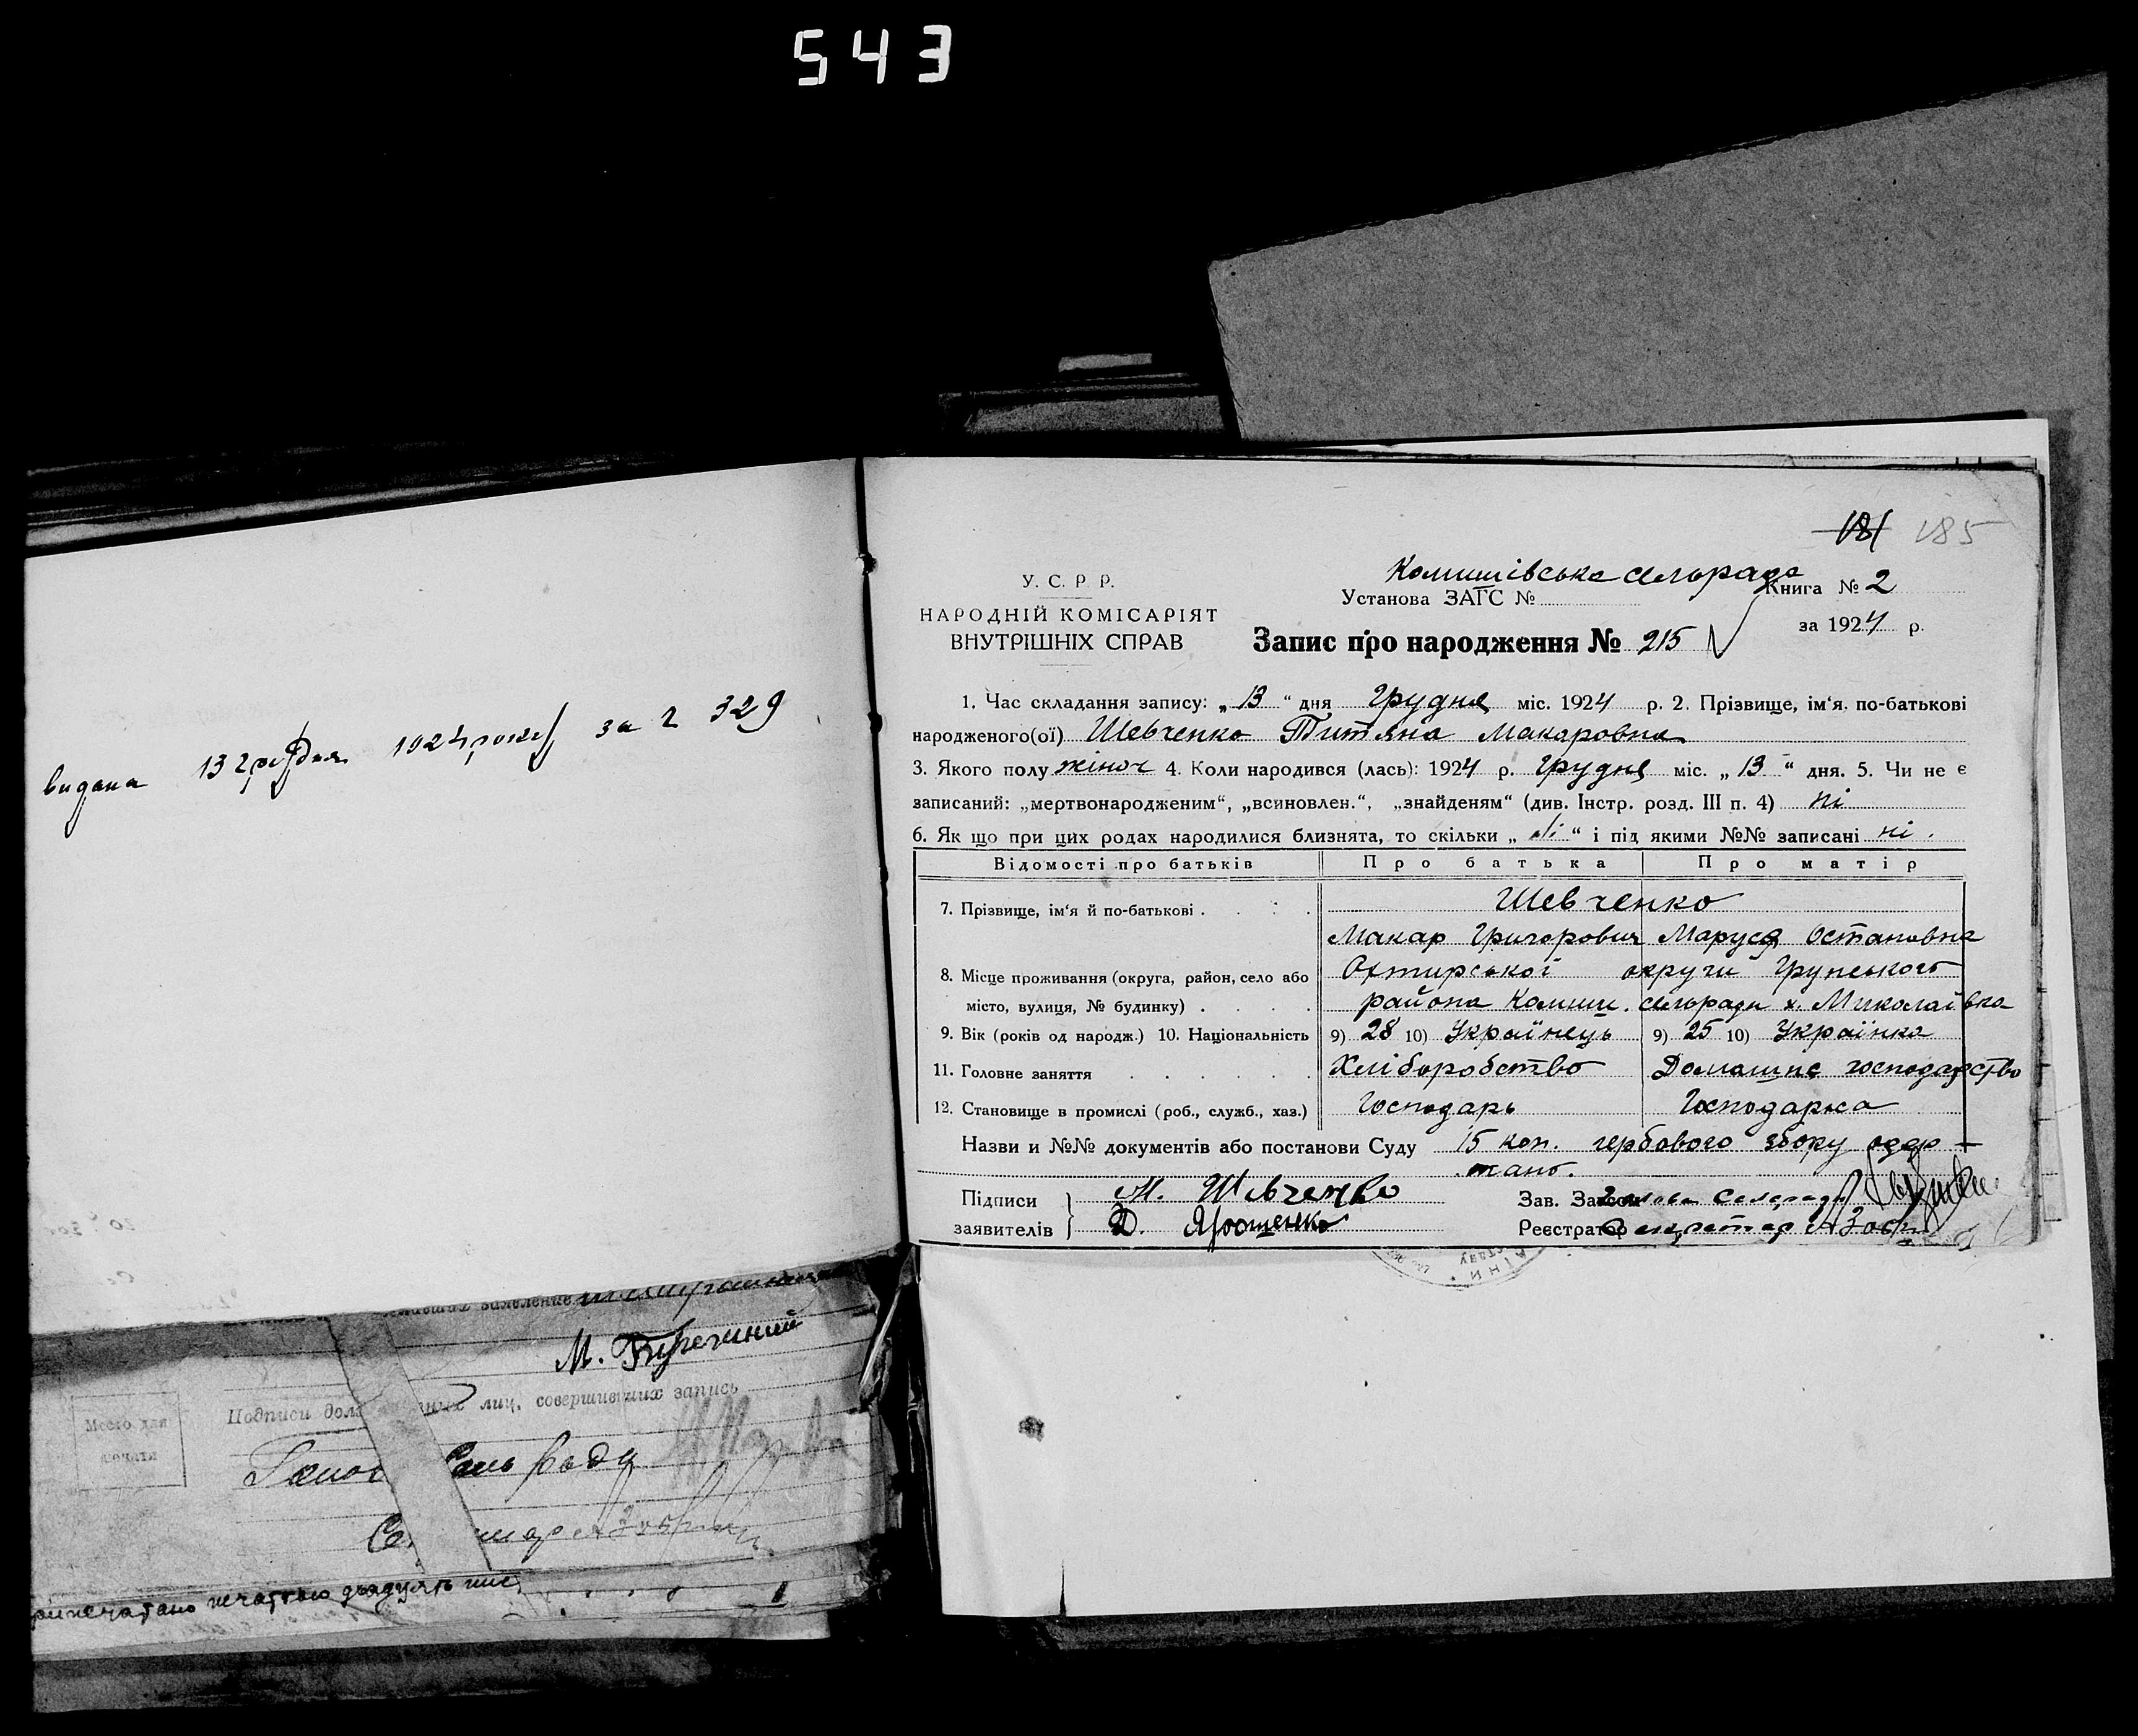 543
видана 13 грудня 1924 року за № 329
181 185
У. С. Р. Р.
НАРОДНІЙ КОМІСАРІЯТ
ВНУТРІШНІХ СПРАВ
Комишівська сельрада
Установа ЗАГС №
Книга № 2
за 1924 р.
Запис про народження № 215
1. Час складання запису: „ 13 “ дня Грудня міс. 1924 р. 2. Прізвище, ім‘я, по-батькові
народженого(ої) Шевченко Титяна Макаровна
3. Якого полу жіноч 4. Коли народився (лась): 1924 р. Грудня міс. „ 13 “ дня. 5. Чи не є
записаний: „мертвонародженим“, „всиновлен.“, „знайденям“ (див. Інстр. розд. III п. 4) ні
6. Як що при цих родах народилися близнята, то скільки „ ні “ і під якими №№ записані ні.
Відомості про батьків Про батька Про матір
7. Прізвище, ім‘я й по-батькові . . . . Шевченко
Макар Григорович Маруся Остаповна
8. Місце проживання (округа, район, село або Охтирської округи Грунського
місто, вулиця, № будинку) . . . . района Комиш. сельради х. Миколаівка
9. Вік (років од народж.) 10. Національність 9) 28 10) Українець 9) 25 10) Українка
11. Головне заняття . . . . . Хліборобство Домашнє господарство
12. Становище в промислі (роб., служб., хаз.) Господарь Господарка
Назви и №№ документів або постанови Суду 15 коп. гербового збору одер-
жано.
Підписи заявителів } М. Шевченко
Д. Ярошенко
Зав. Загсом Голова Селради
Реєстратор Секретар
заявление
М.
Место для печати
Подписи лиц, совершивших запись
печаттю